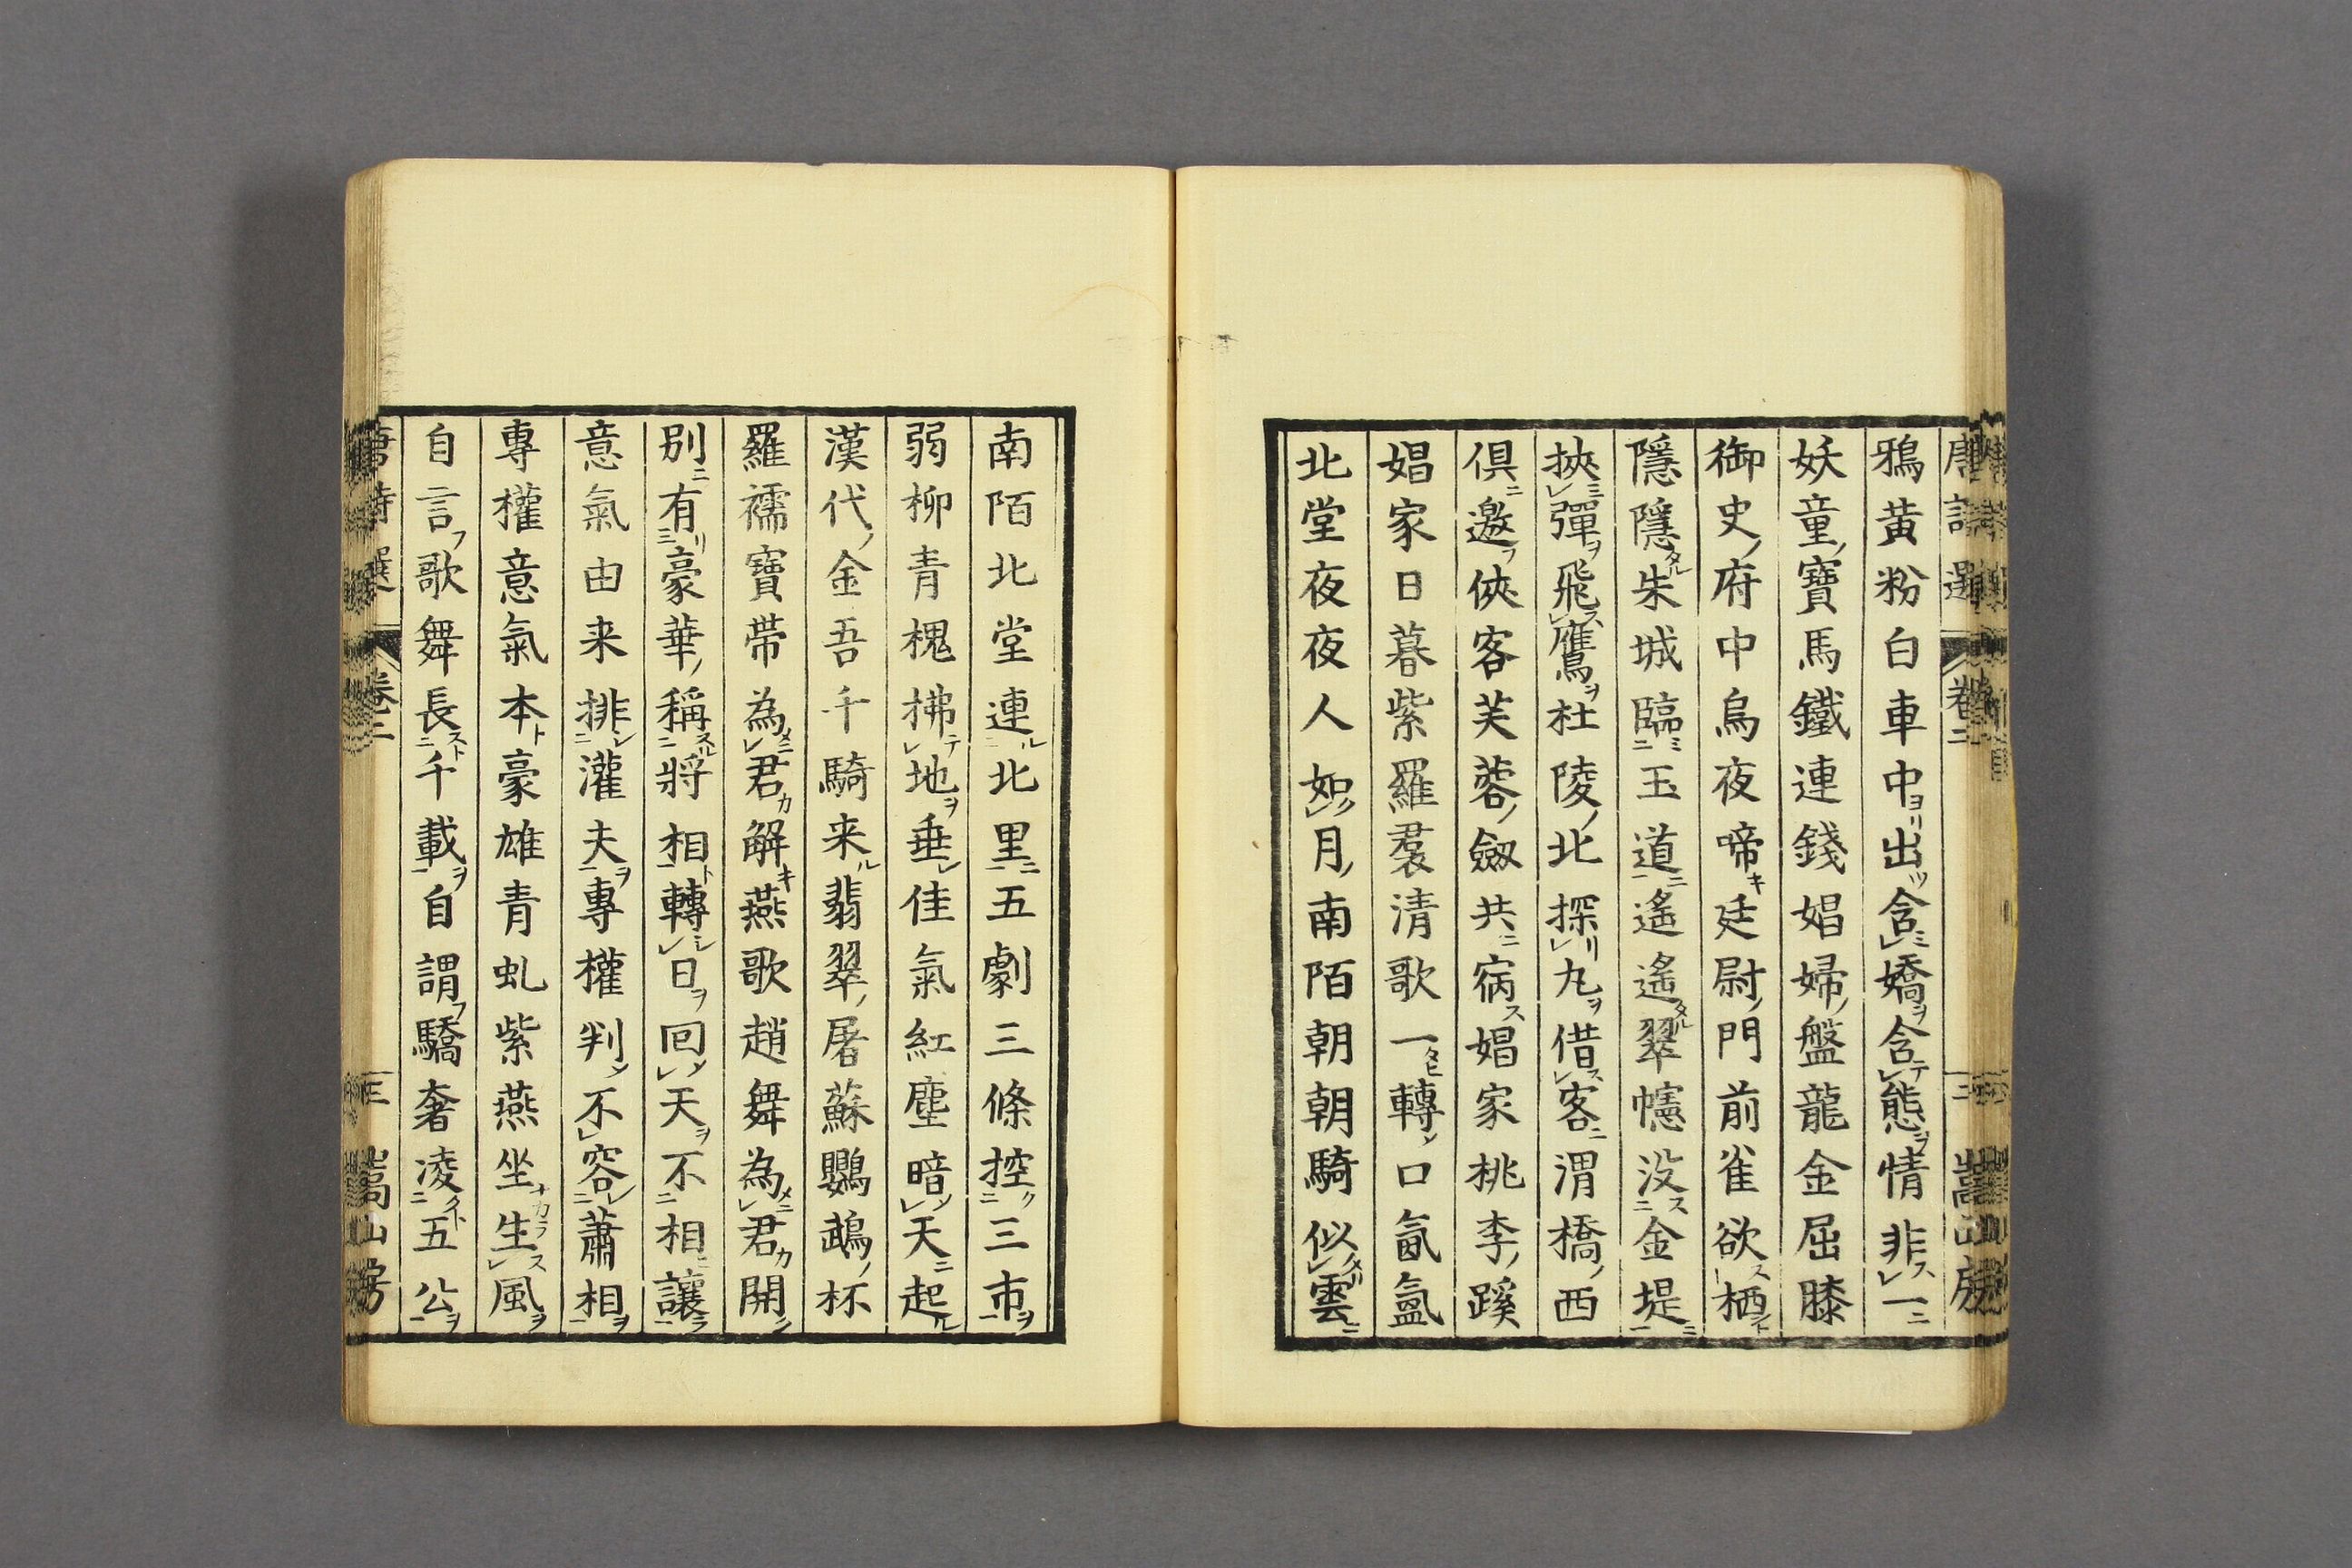 唐詩選 卷二 二 嵩山房
鴉黃粉白車中ヨリ出ツ含ミレ嬌ヲ含テレ態ヲ情非スレ一ニ
妖童ノ寶馬鐵連錢娼婦ノ盤龍金屈膝
御史ノ府中烏夜啼キ廷尉ノ門前雀欲スレ栖ント
隱隱タル朱城臨ミ二玉道一ニ遙遙タル翠幰没ス二金堤一ニ
挾ミレ彈ヲ飛スレ鷹ヲ杜陵ノ北探リレ丸ヲ借スレ客ニ渭橋ノ西
俱ニ邀フ俠客芙蓉ノ劔共ニ宿ス娼家桃李ノ蹊
娼家日暮紫羅裙清歌一タヒ轉ン口氤氳
北堂夜夜人如シレ月ノ南陌朝朝騎似タリレ雲ニ
南陌北堂連ル二北里一ニ五劇三條控ク二三市一ヲ
弱柳青槐拂テレ地ヲ垂レ佳氣紅塵暗シレ天ニ起ル
漢代ノ金吾千騎来ル翡翠ノ屠蘇鸚鵡ノ杯
羅襦寶帶為メニレ君カ解キ燕歌趙舞為メニレ君カ開ン
別ニ有リ三豪華ノ稱スル二將相一ト轉シレ日ヲ回ノレ天ヲ不二相ニ讓一ラ
意氣由来排シ二灌夫一ヲ專權判ン不レ容レ二蕭相一ヲ
專權意氣本ト豪雄青虬紫燕坐ナカラ生スレ風ヲ
自言フ歌舞長スト二千載一ヲ自謂フ驕奢凌クト二五公一ヲ
唐詩選 卷二 三 嵩山房